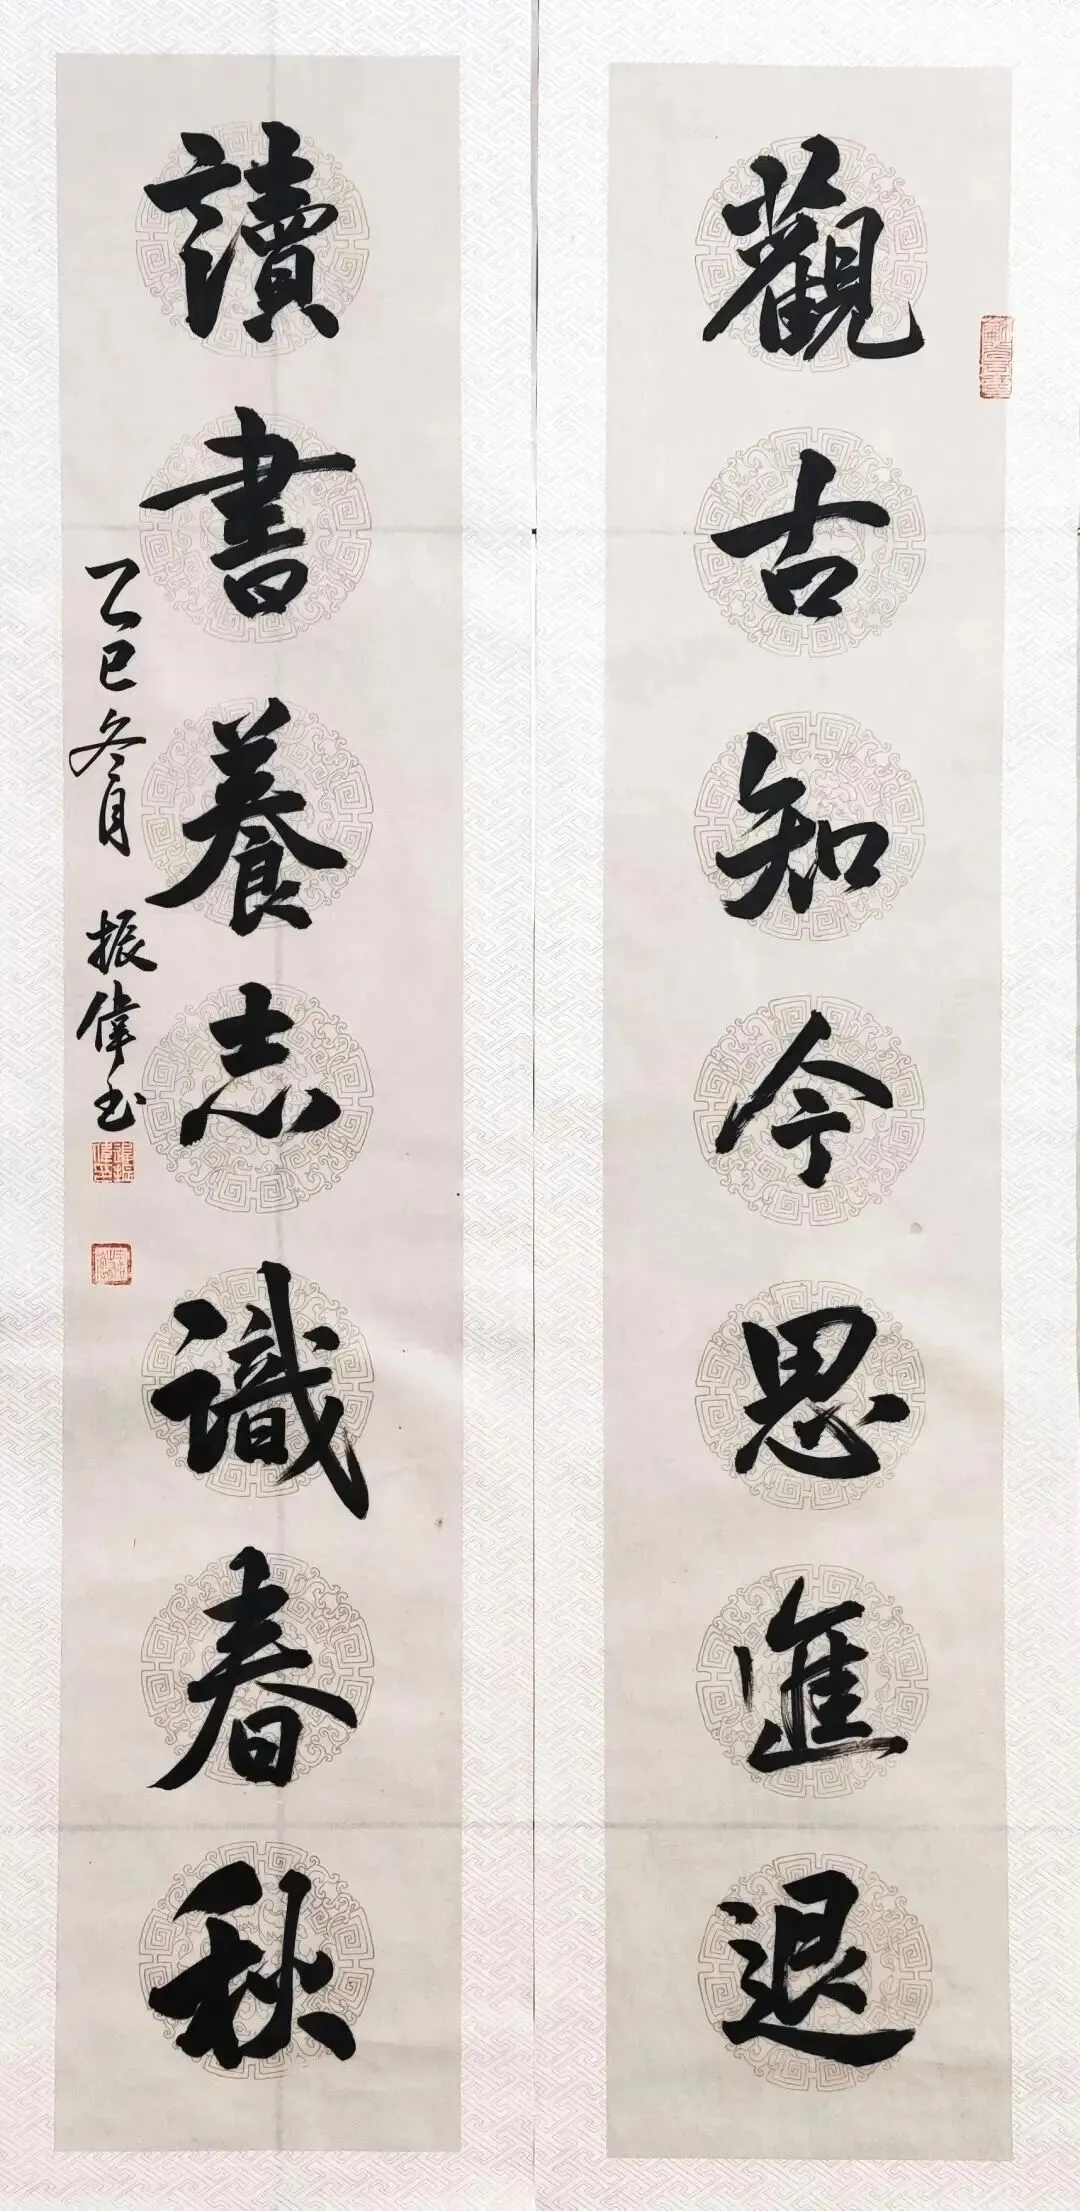 觀古知今思進退
讀書養志識春秋
乙巳冬月 振偉书